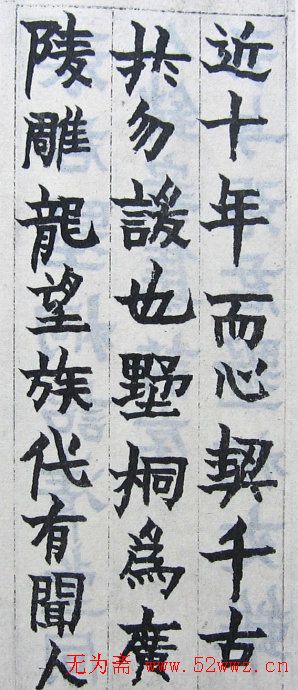 近十年而心契千古
共勿諼也墅桐為廣
陵雕龍望族代有聞人
无为斋 www.52wwz.cn